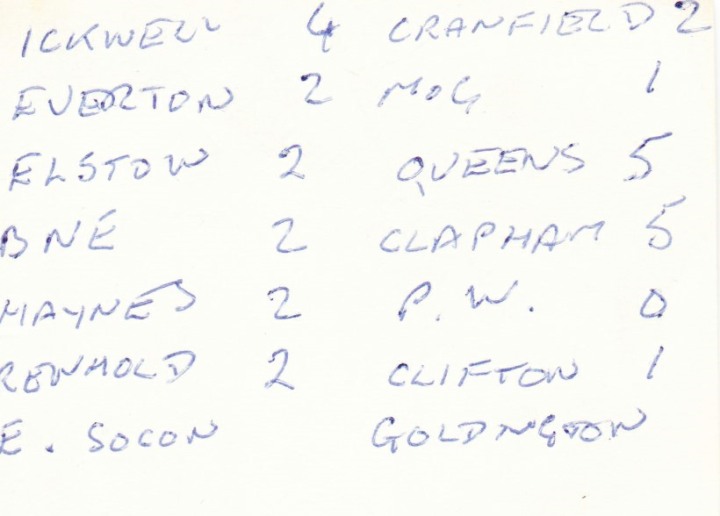 ICKWELL 4 CRANFIELD 2
EVERTON 2 MOG 1
ELSTOW 2 QUEENS 5
BNE 2 CLAPHAM 5
HAYNES 2 P.W. 0
RENHOLD 2 CLIFTON 1
E. SOCON GOLDINGTON